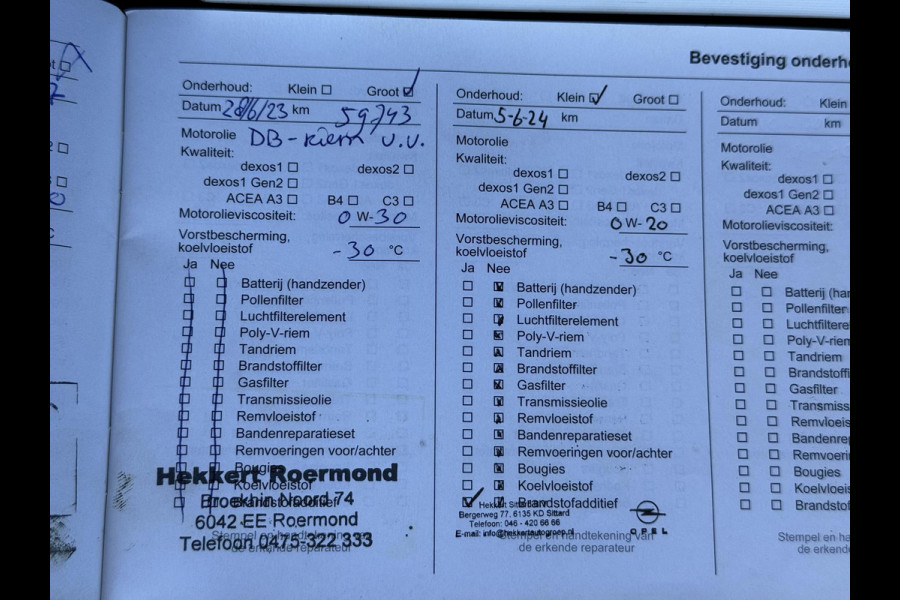 Bevestiging onderho
Onderhoud: Klein ☐ Groot ☑
Datum 28/6/23 km 59743
Motorolie DB-riem v.v.
Kwaliteit:
dexos1 ☐ dexos2 ☐
dexos1 Gen2 ☐
ACEA A3 ☐ B4 ☐ C3 ☐
Motorolieviscositeit: 0 W-30
Vorstbescherming,
koelvloeistof -30 °C
Ja Nee
Batterij (handzender)
Pollenfilter
Luchtfilterelement
Poly-V-riem
Tandriem
Brandstoffilter
Gasfilter
Transmissieolie
Remvloeistof
Bandenreparatieset
Remvoeringen voor/achter
Bougies
Koelvloeistof
Brandstofadditief
Hekkert Roermond
Broekhin Noord 74
6042 EE Roermond
Telefoon 0475-322 333
Stempel en handtekening van
de erkende reparateur
Onderhoud: Klein ☑ Groot ☐
Datum 5-6-24 km
Motorolie
Kwaliteit:
dexos1 ☐ dexos2 ☐
dexos1 Gen2 ☐
ACEA A3 ☐ B4 ☐ C3 ☐
Motorolieviscositeit: 0 W-20
Vorstbescherming,
koelvloeistof -30 °C
Ja Nee
Batterij (handzender)
Pollenfilter
Luchtfilterelement
Poly-V-riem
Tandriem
Brandstoffilter
Gasfilter
Transmissieolie
Remvloeistof
Bandenreparatieset
Remvoeringen voor/achter
Bougies
Koelvloeistof
Brandstofadditief
Hekkert Sittard
Bergerweg 77, 6135 KD Sittard
Telefoon: 046 - 420 66 66
E-mail: info@hekkertautogroep.nl
OPEL
Stempel en handtekening van
de erkende reparateur
Onderhoud: Klein
Datum km
Motorolie
Kwaliteit:
dexos1 ☐
dexos1 Gen2 ☐
ACEA A3 ☐
Motorolieviscositeit:
Vorstbescherming,
koelvloeistof
Ja Nee
Batterij (han
Pollenfilter
Luchtfiltere
Poly-V-riem
Tandriem
Brandstoffi
Gasfilter
Transmiss
Remvloeis
Bandenre
Remvoeri
Bougies
Koelvloeis
Brandstof
Stempel en ha
de erkende